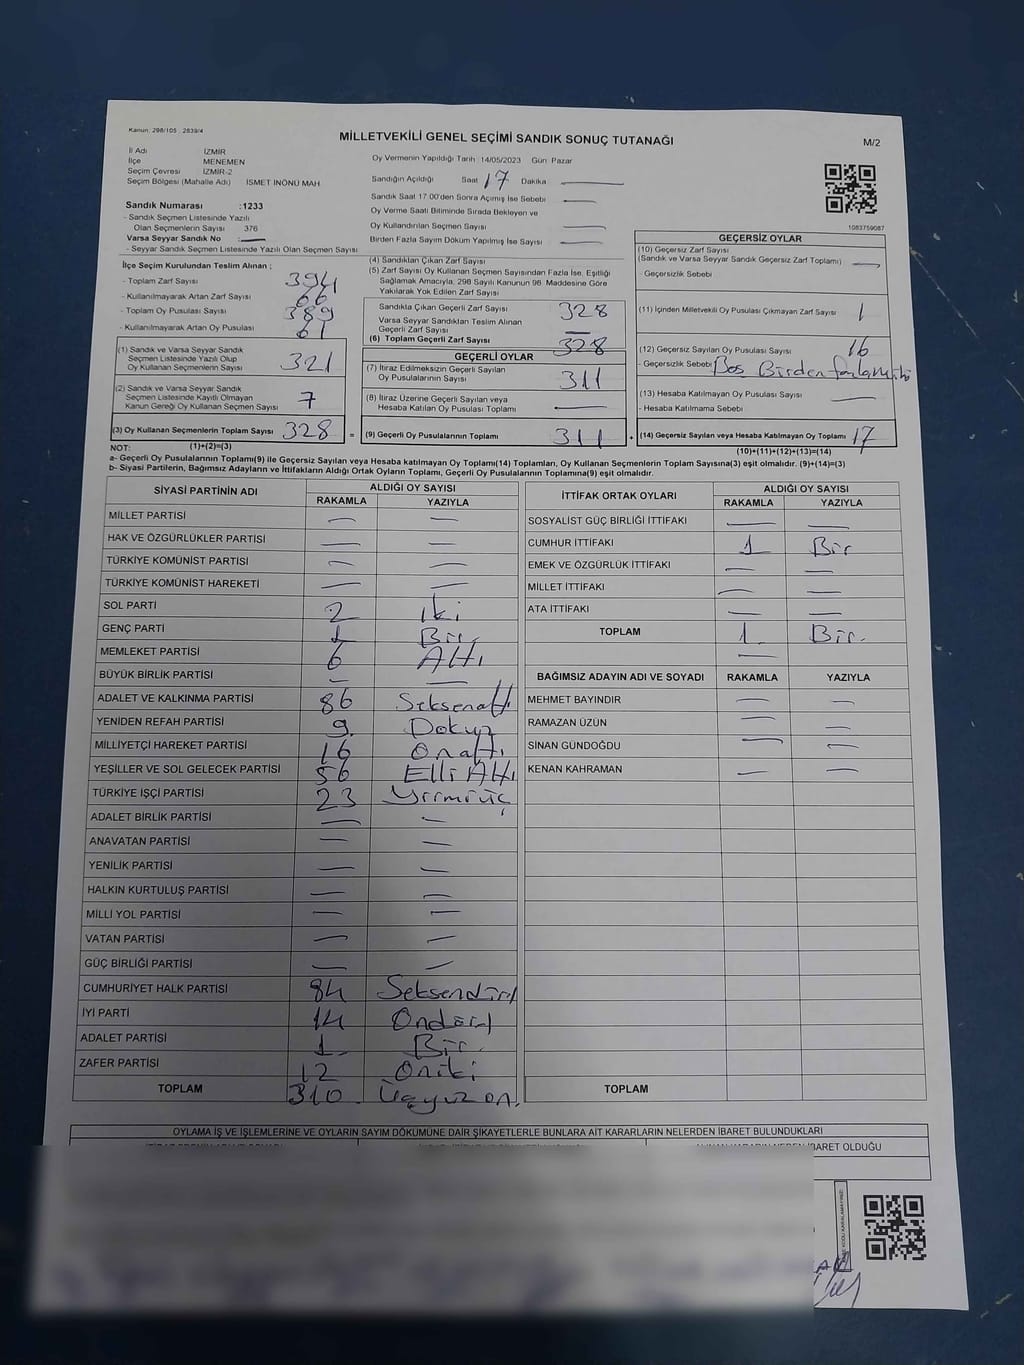 Kanun: 298/105 , 2839/4
MİLLETVEKİLİ GENEL SEÇİMİ SANDIK SONUÇ TUTANAĞI
M/2
İl Adı İZMİR
İlçe MENEMEN
Seçim Çevresi İZMİR-2
Seçim Bölgesi (Mahalle Adı) İSMET İNÖNÜ MAH
Sandık Numarası :1233
- Sandık Seçmen Listesinde Yazılı
Olan Seçmenlerin Sayısı 376
Varsa Seyyar Sandık No :
- Seyyar Sandık Seçmen Listesinde Yazılı Olan Seçmen Sayısı
Oy Vermenin Yapıldığı Tarih 14/05/2023 Gün Pazar
Sandığın Açıldığı Saat 17 Dakika
Sandık Saat 17:00'den Sonra Açılmış İse Sebebi
Oy Verme Saati Bitiminde Sırada Bekleyen ve
Oy Kullandırılan Seçmen Sayısı
Birden Fazla Sayım Döküm Yapılmış İse Sayısı
1083759087
İlçe Seçim Kurulundan Teslim Alınan ;
- Toplam Zarf Sayısı 394
- Kullanılmayarak Artan Zarf Sayısı 66
- Toplam Oy Pusulası Sayısı 389
- Kullanılmayarak Artan Oy Pusulası 61
(1) Sandık ve Varsa Seyyar Sandık
Seçmen Listesinde Yazılı Olup
Oy Kullanan Seçmenlerin Sayısı 321
(2) Sandık ve Varsa Seyyar Sandık
Seçmen Listesinde Kayıtlı Olmayan
Kanun Gereği Oy Kullanan Seçmen Sayısı 7
(3) Oy Kullanan Seçmenlerin Toplam Sayısı 328 =
(4) Sandıktan Çıkan Zarf Sayısı
(5) Zarf Sayısı Oy Kullanan Seçmen Sayısından Fazla İse, Eşitliği
Sağlamak Amacıyla, 298 Sayılı Kanunun 98. Maddesine Göre
Yakılarak Yok Edilen Zarf Sayısı
Sandıkta Çıkan Geçerli Zarf Sayısı 328
Varsa Seyyar Sandıktan Teslim Alınan
Geçerli Zarf Sayısı
(6) Toplam Geçerli Zarf Sayısı 328
GEÇERLİ OYLAR
(7) İtiraz Edilmeksizin Geçerli Sayılan
Oy Pusulalarının Sayısı 311
(8) İtiraz Üzerine Geçerli Sayılan veya
Hesaba Katılan Oy Pusulası Toplamı
(9) Geçerli Oy Pusulalarının Toplamı 311 +
GEÇERSİZ OYLAR
(10) Geçersiz Zarf Sayısı
(Sandık ve Varsa Seyyar Sandık Geçersiz Zarf Toplamı)
- Geçersizlik Sebebi
(11) İçinden Milletvekili Oy Pusulası Çıkmayan Zarf Sayısı 1
(12) Geçersiz Sayılan Oy Pusulası Sayısı 16
- Geçersizlik Sebebi Boş Birden
(13) Hesaba Katılmayan Oy Pusulası Sayısı
- Hesaba Katılmama Sebebi
(14) Geçersiz Sayılan veya Hesaba Katılmayan Oy Toplamı 17
NOT: (1)+(2)=(3)
(10)+(11)+(12)+(13)=(14)
a- Geçerli Oy Pusulalarının Toplamı(9) ile Geçersiz Sayılan veya Hesaba Katılmayan Oy Toplamı(14) Toplamları, Oy Kullanan Seçmenlerin Toplam Sayısına(3) eşit olmalıdır. (9)+(14)=(3)
b- Siyasi Partilerin, Bağımsız Adayların ve İttifakların Aldığı Ortak Oyların Toplamı, Geçerli Oy Pusulalarının Toplamına(9) eşit olmalıdır.
SİYASİ PARTİNİN ADI
ALDIĞI OY SAYISI
RAKAMLA YAZIYLA
MİLLET PARTİSİ
HAK VE ÖZGÜRLÜKLER PARTİSİ
TÜRKİYE KOMÜNİST PARTİSİ
TÜRKİYE KOMÜNİST HAREKETİ
SOL PARTİ 2 İki
GENÇ PARTİ 1 Bir
MEMLEKET PARTİSİ 6 Altı
BÜYÜK BİRLİK PARTİSİ
ADALET VE KALKINMA PARTİSİ 86 Seksenaltı
YENİDEN REFAH PARTİSİ 9 Dokuz
MİLLİYETÇİ HAREKET PARTİSİ 16 Onaltı
YEŞİLLER VE SOL GELECEK PARTİSİ 56 Elli Altı
TÜRKİYE İŞÇİ PARTİSİ 23 Yirmiüç
ADALET BİRLİK PARTİSİ
ANAVATAN PARTİSİ
YENİLİK PARTİSİ
HALKIN KURTULUŞ PARTİSİ
MİLLİ YOL PARTİSİ
VATAN PARTİSİ
GÜÇ BİRLİĞİ PARTİSİ
CUMHURİYET HALK PARTİSİ 84 Seksendört
İYİ PARTİ 14 Ondört
ADALET PARTİSİ 1 Bir.
ZAFER PARTİSİ 12 Oniki
TOPLAM 310 Üçyüz on.
İTTİFAK ORTAK OYLARI
ALDIĞI OY SAYISI
RAKAMLA YAZIYLA
SOSYALİST GÜÇ BİRLİĞİ İTTİFAKI
CUMHUR İTTİFAKI 1 Bir
EMEK VE ÖZGÜRLÜK İTTİFAKI
MİLLET İTTİFAKI
ATA İTTİFAKI
TOPLAM 1 Bir.
BAĞIMSIZ ADAYIN ADI VE SOYADI RAKAMLA YAZIYLA
MEHMET BAYINDIR
RAMAZAN ÜZÜN
SİNAN GÜNDOĞDU
KENAN KAHRAMAN
TOPLAM
OYLAMA İŞ VE İŞLEMLERİNE VE OYLARIN SAYIM DÖKÜMÜNE DAİR ŞİKAYETLERLE BUNLARA AİT KARARLARIN NELERDEN İBARET BULUNDUKLARI
İBARET OLDUĞU